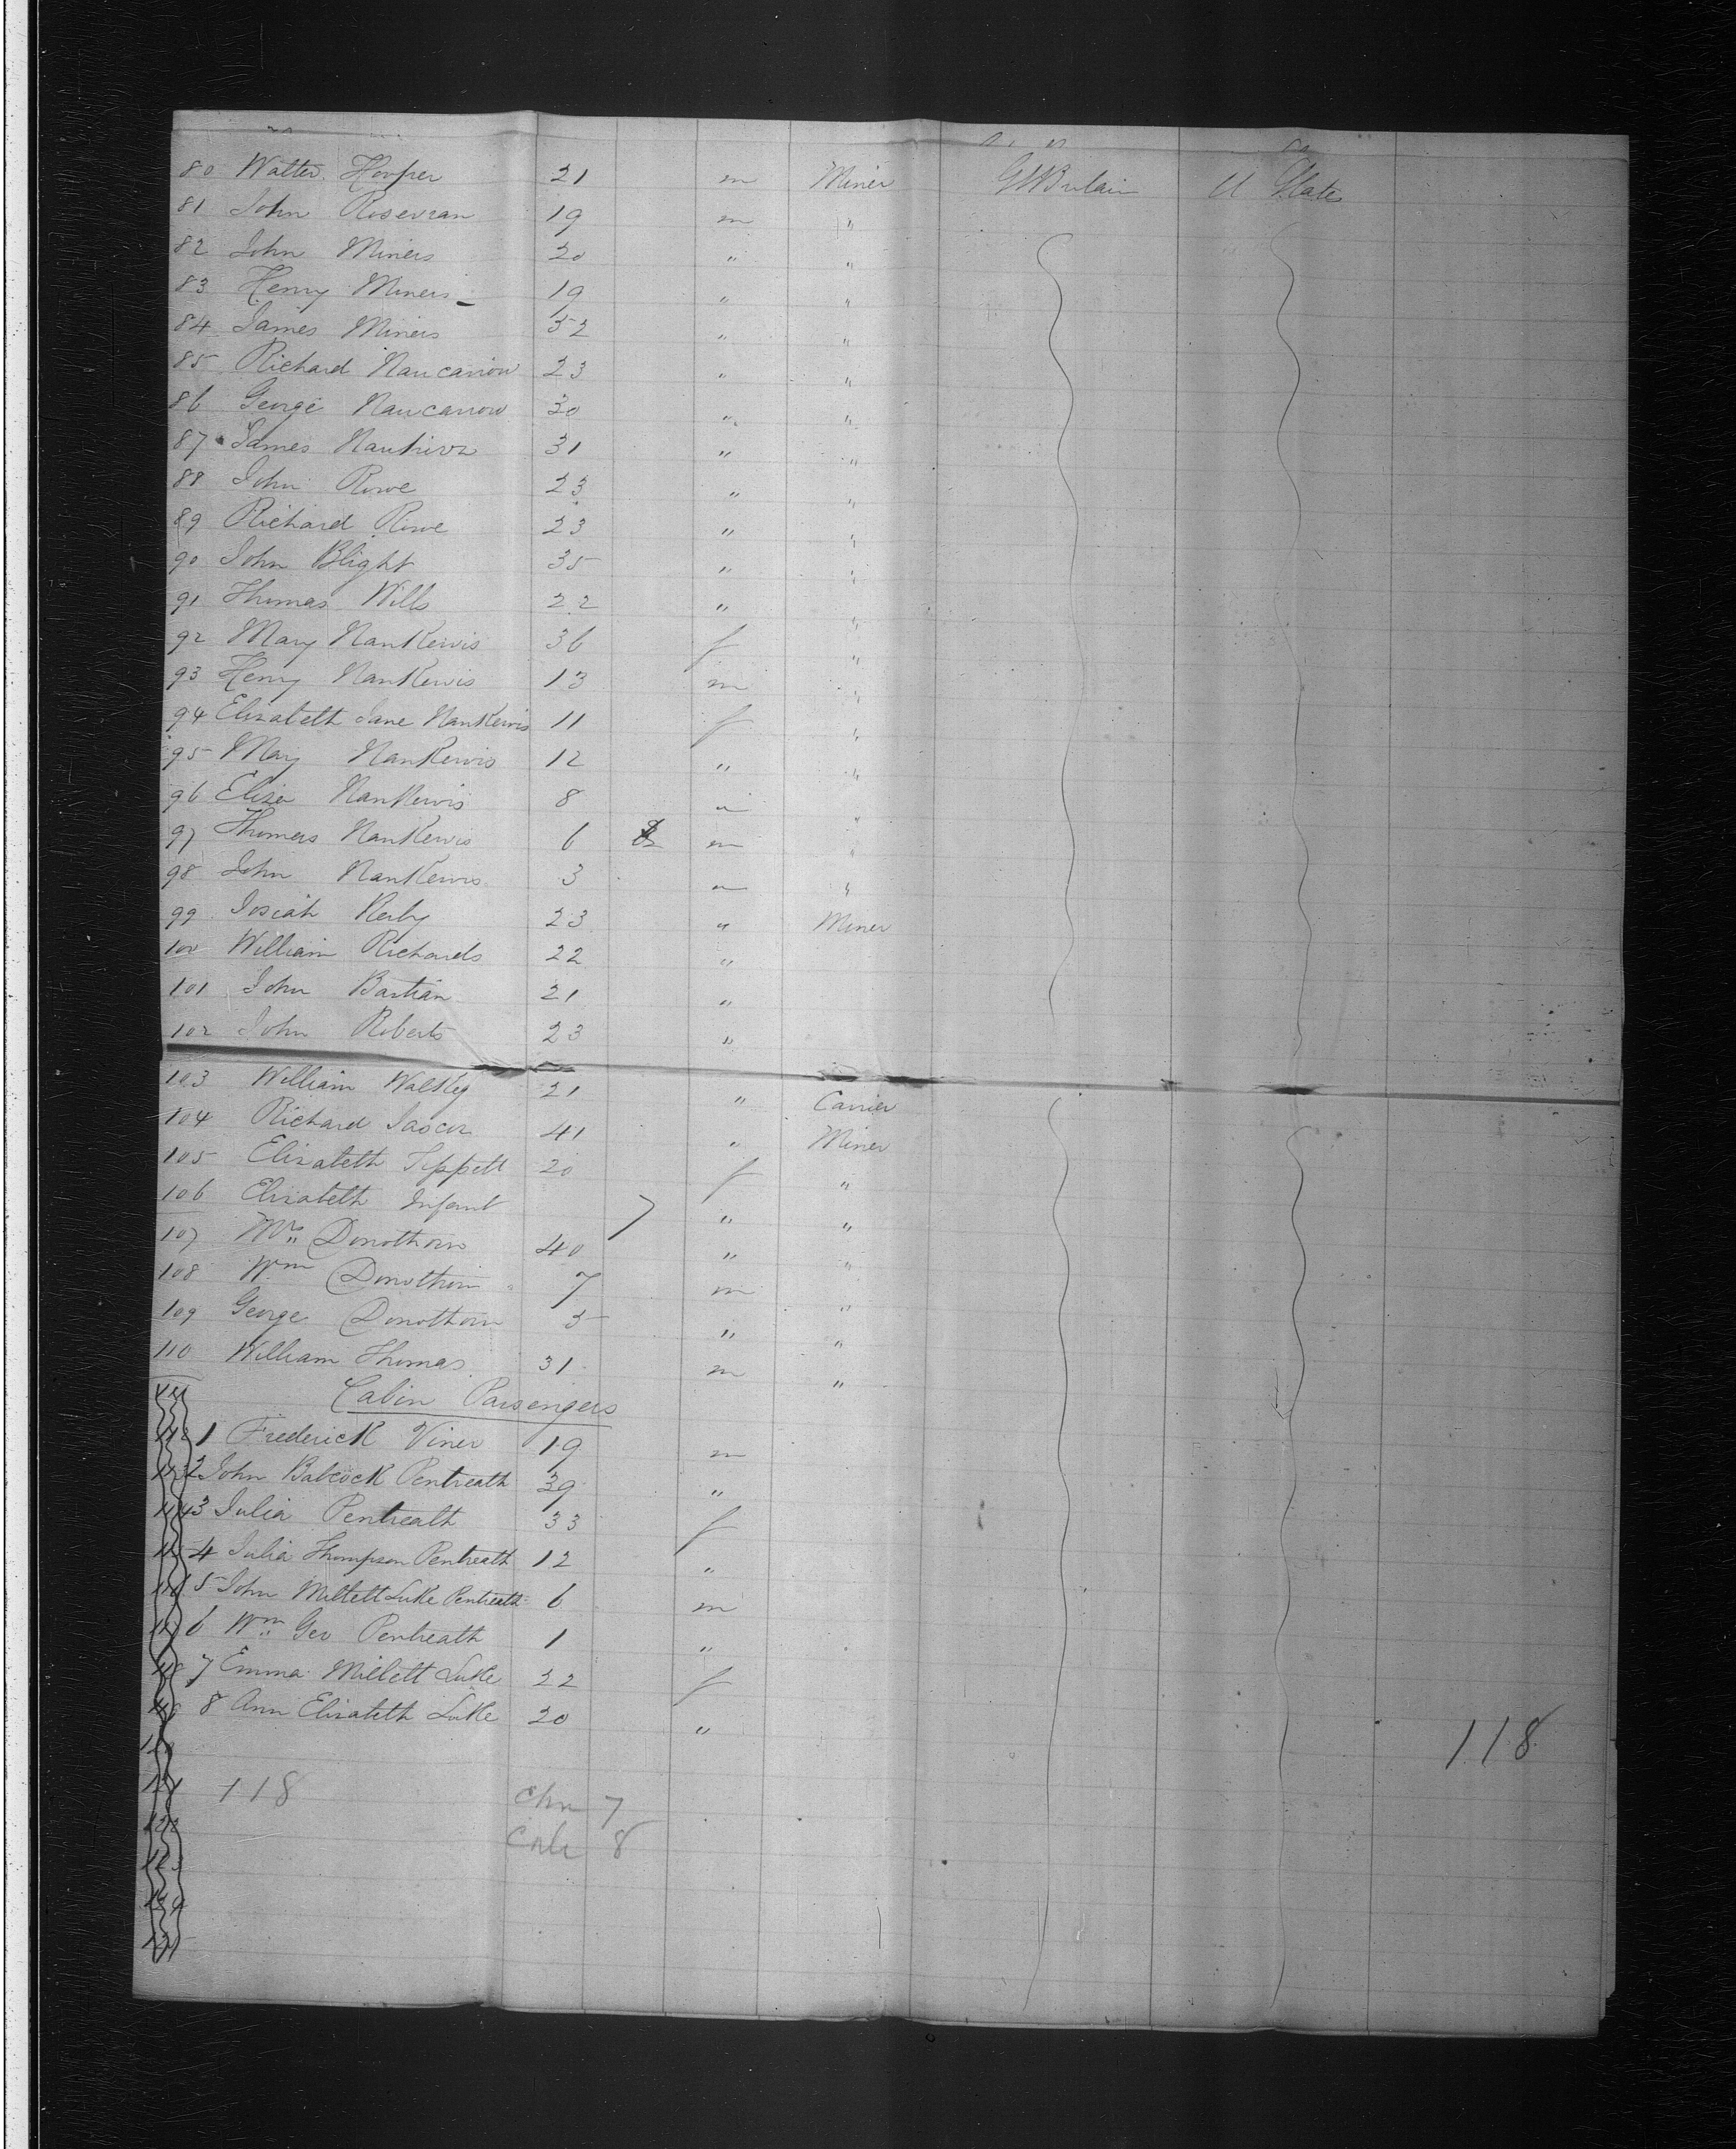 80 Walter Hooper 21 m Miner Gt Britain U State
81 John Rosevean 19 m "
82 John Miners 20 " "
83 Henry Miners 19 " "
84 James Miners 32 " "
85 Richard Nancarrow 23 " "
86 George Nancarrow 30 " "
87 James 31 " "
88 John Rowe 23 " "
89 Richard Rowe 23 " "
90 John Blight 35 " "
91 Thomas Wills 22 " "
92 Mary NanKervis 36 f "
93 Henry NanKervis 13 m "
94 Elizabeth Jane NanKervis 11 f "
95 Mary NanKervis 12 " "
96 Eliza NanKervis 8 " "
97 Thomas NanKervis 6 m "
98 John NanKervis 3 " "
99 Josiah Kerby 23 " Miner
100 William Richards 22 "
101 John Bastian 21 "
102 John Roberts 23 "
103 William 21 " Carrier
104 Richard 41 " Miner
105 Elizabeth Tippett 20 f "
106 Elizabeth Infant " "
107 Mrs Donothorn 40 " "
108 Wm Donothorn 7 m "
109 George Donothorn 5 " "
110 William Thomas 31 m "
Cabin Passengers
1 Frederick Viner 19 m
2 John Babcock Pentreath 39 "
3 Julia Pentreath 33 f
4 Julia Thompson Pentreath 12 "
5 John Millett Luke Pentreath 6 m
6 Wm Geo Pentreath 1 "
7 Emma Millett Luke 22 f
8 Ann Elizabeth Luke 20 "
118
118 Chn 7
8